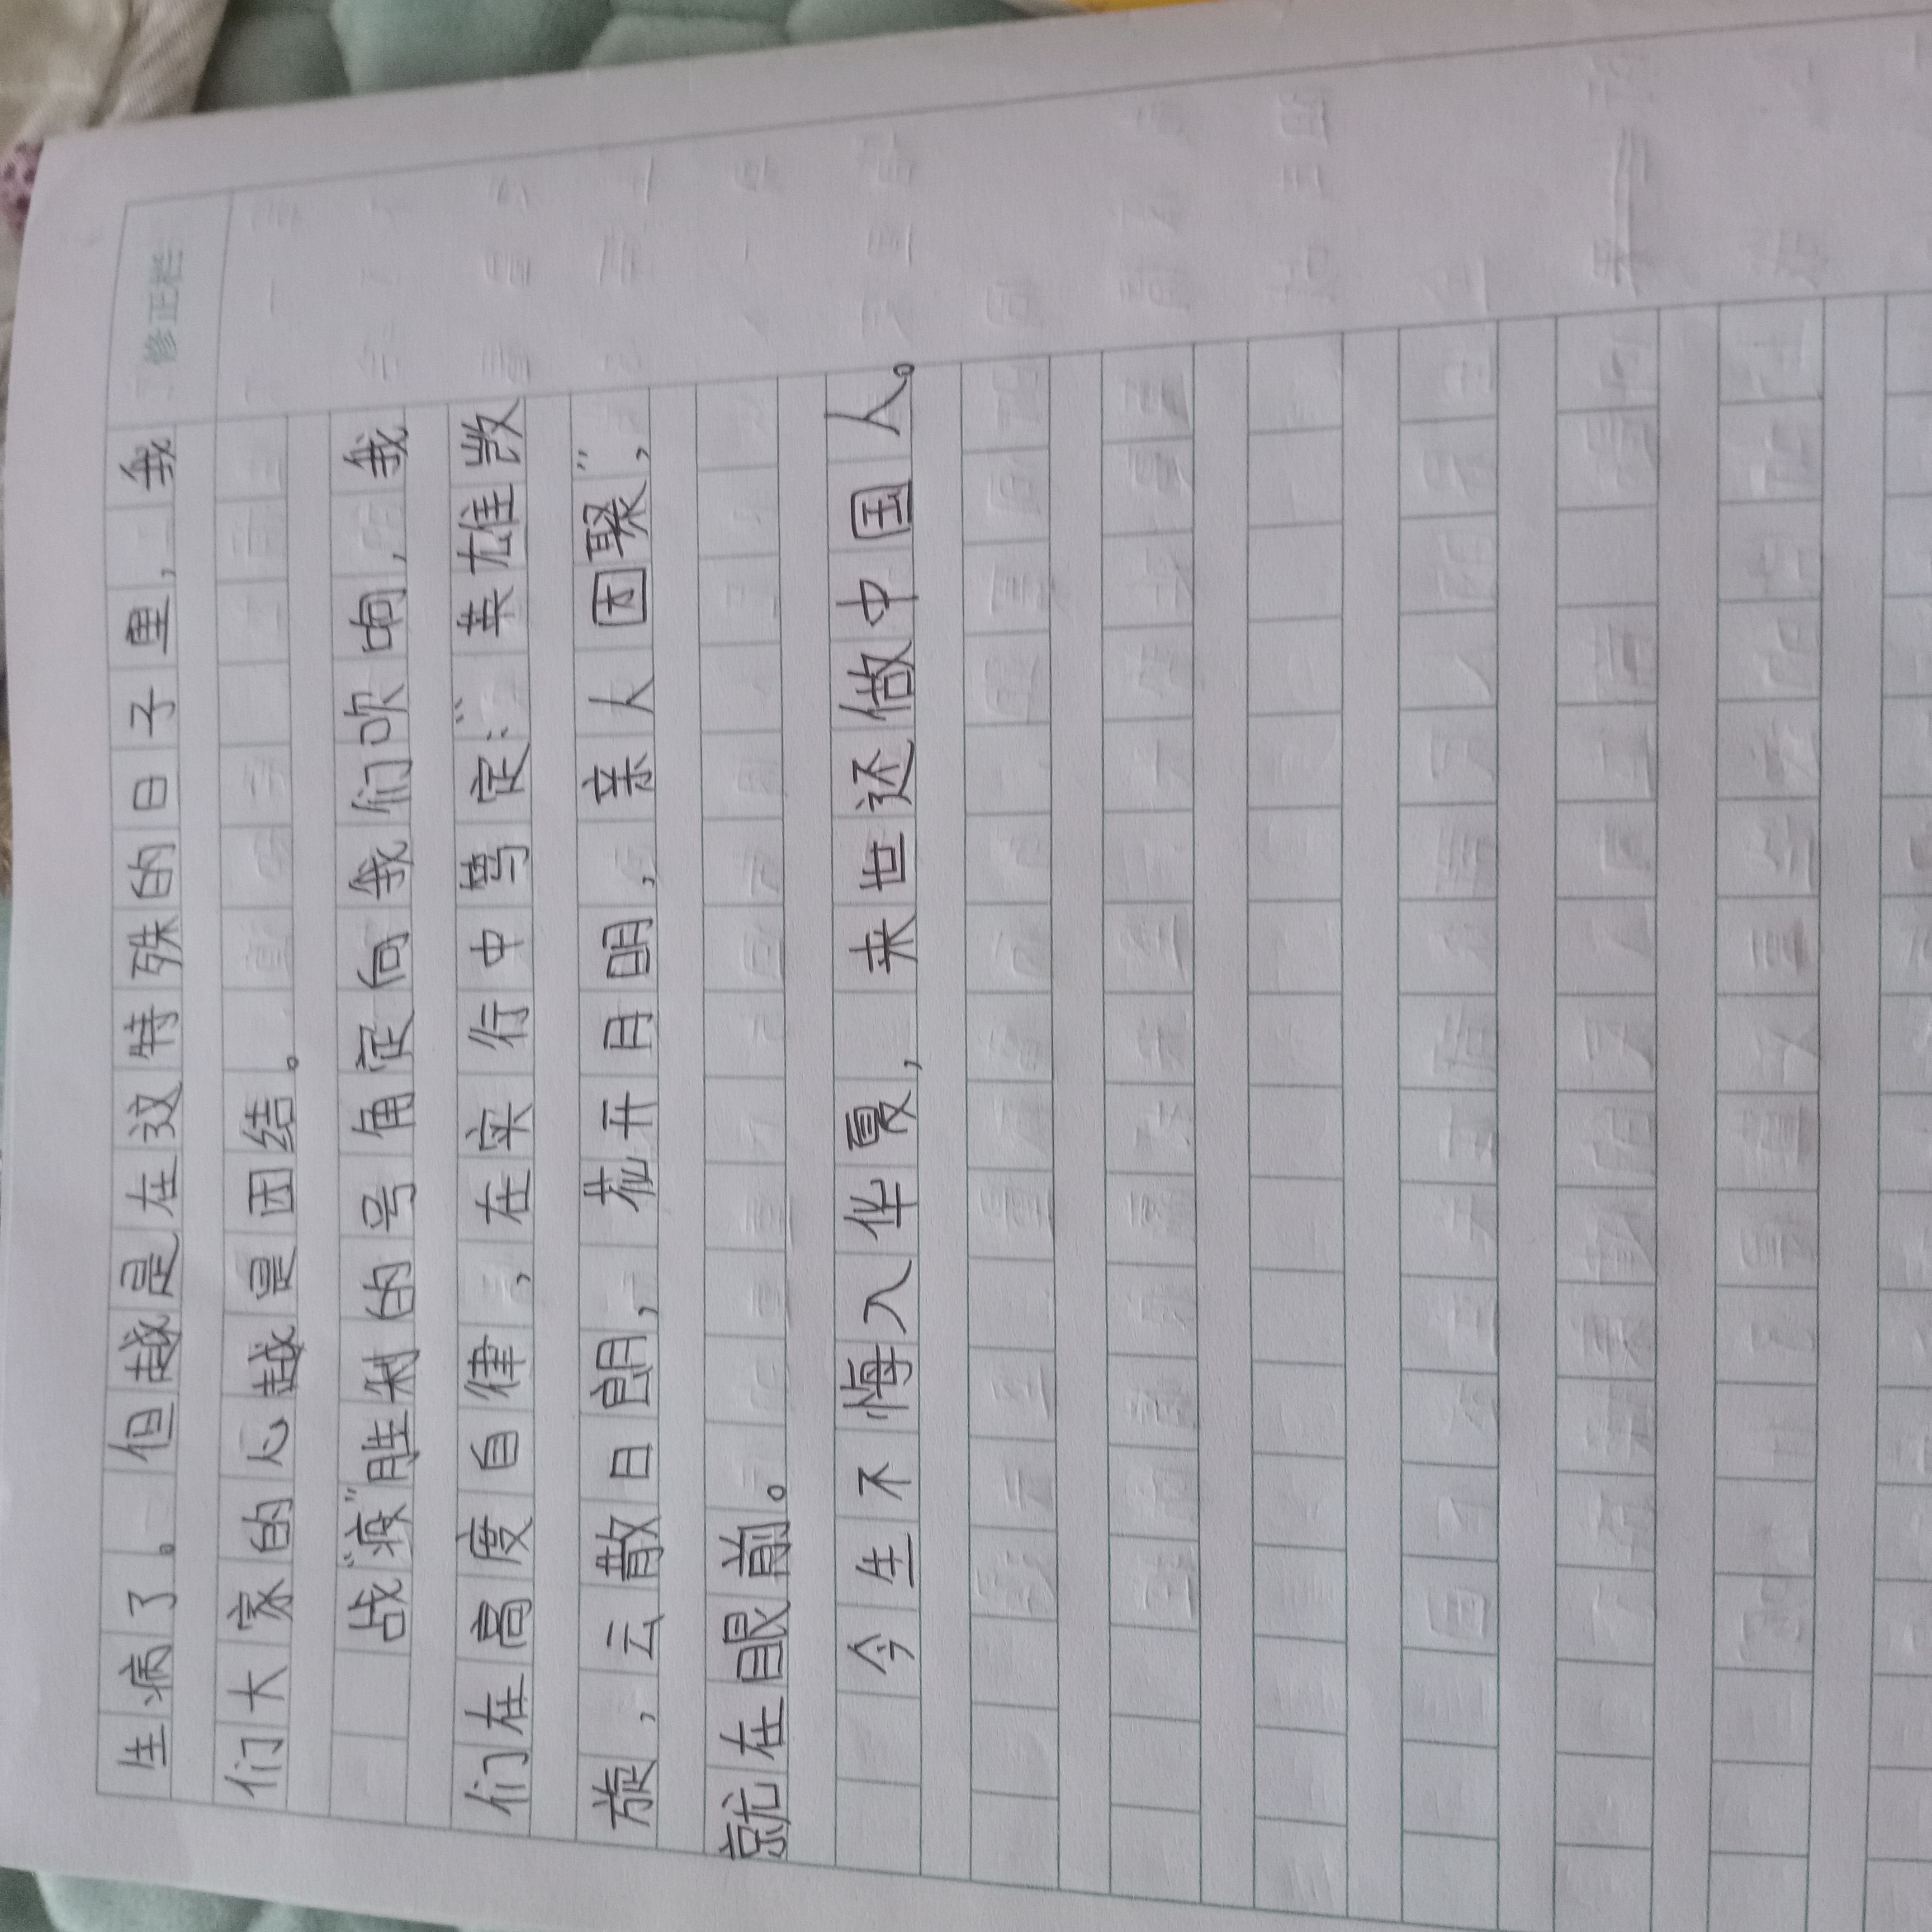 修正栏
生病了。但越是在这特殊的日子里，我
们大家的心越是团结。
战“疫”胜利的号角定向我们吹响，我
们在高度自律，在实行中笃定：“英雄凯
旋，云散日朗，花开月明，亲人团聚”，
就在眼前。
今生不悔入华夏，来世还做中国人。